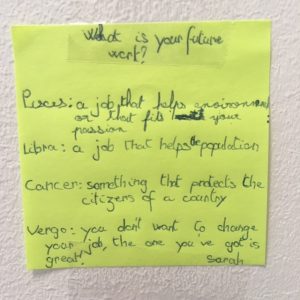 What is your future
work?
Pisces: a job that helps environmen
or that fits your
passion
Libra: a job that helps the population
Cancer: something that protects the
citizens of a country
Vergo: you don't want to change
your job, the one you've got is
great!
Sarah